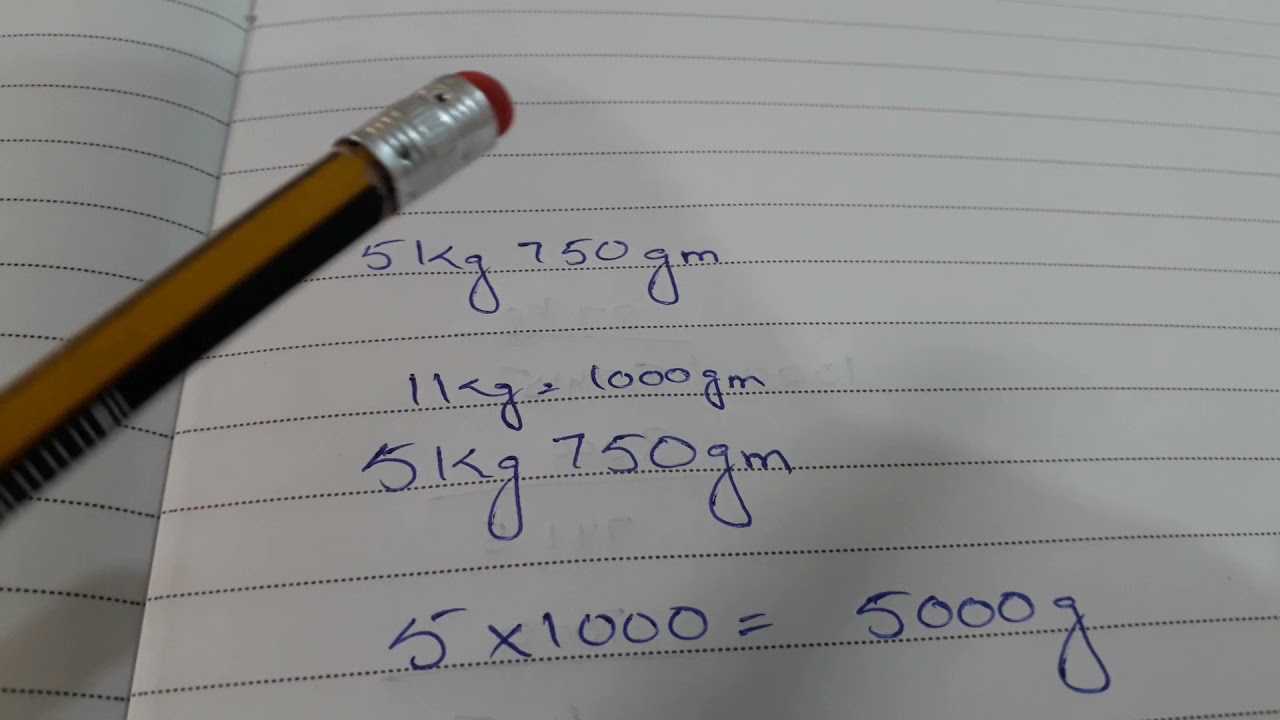 5kg 750gm
11kg = 1000gm
5kg 750gm
5 × 1000 = 5000g